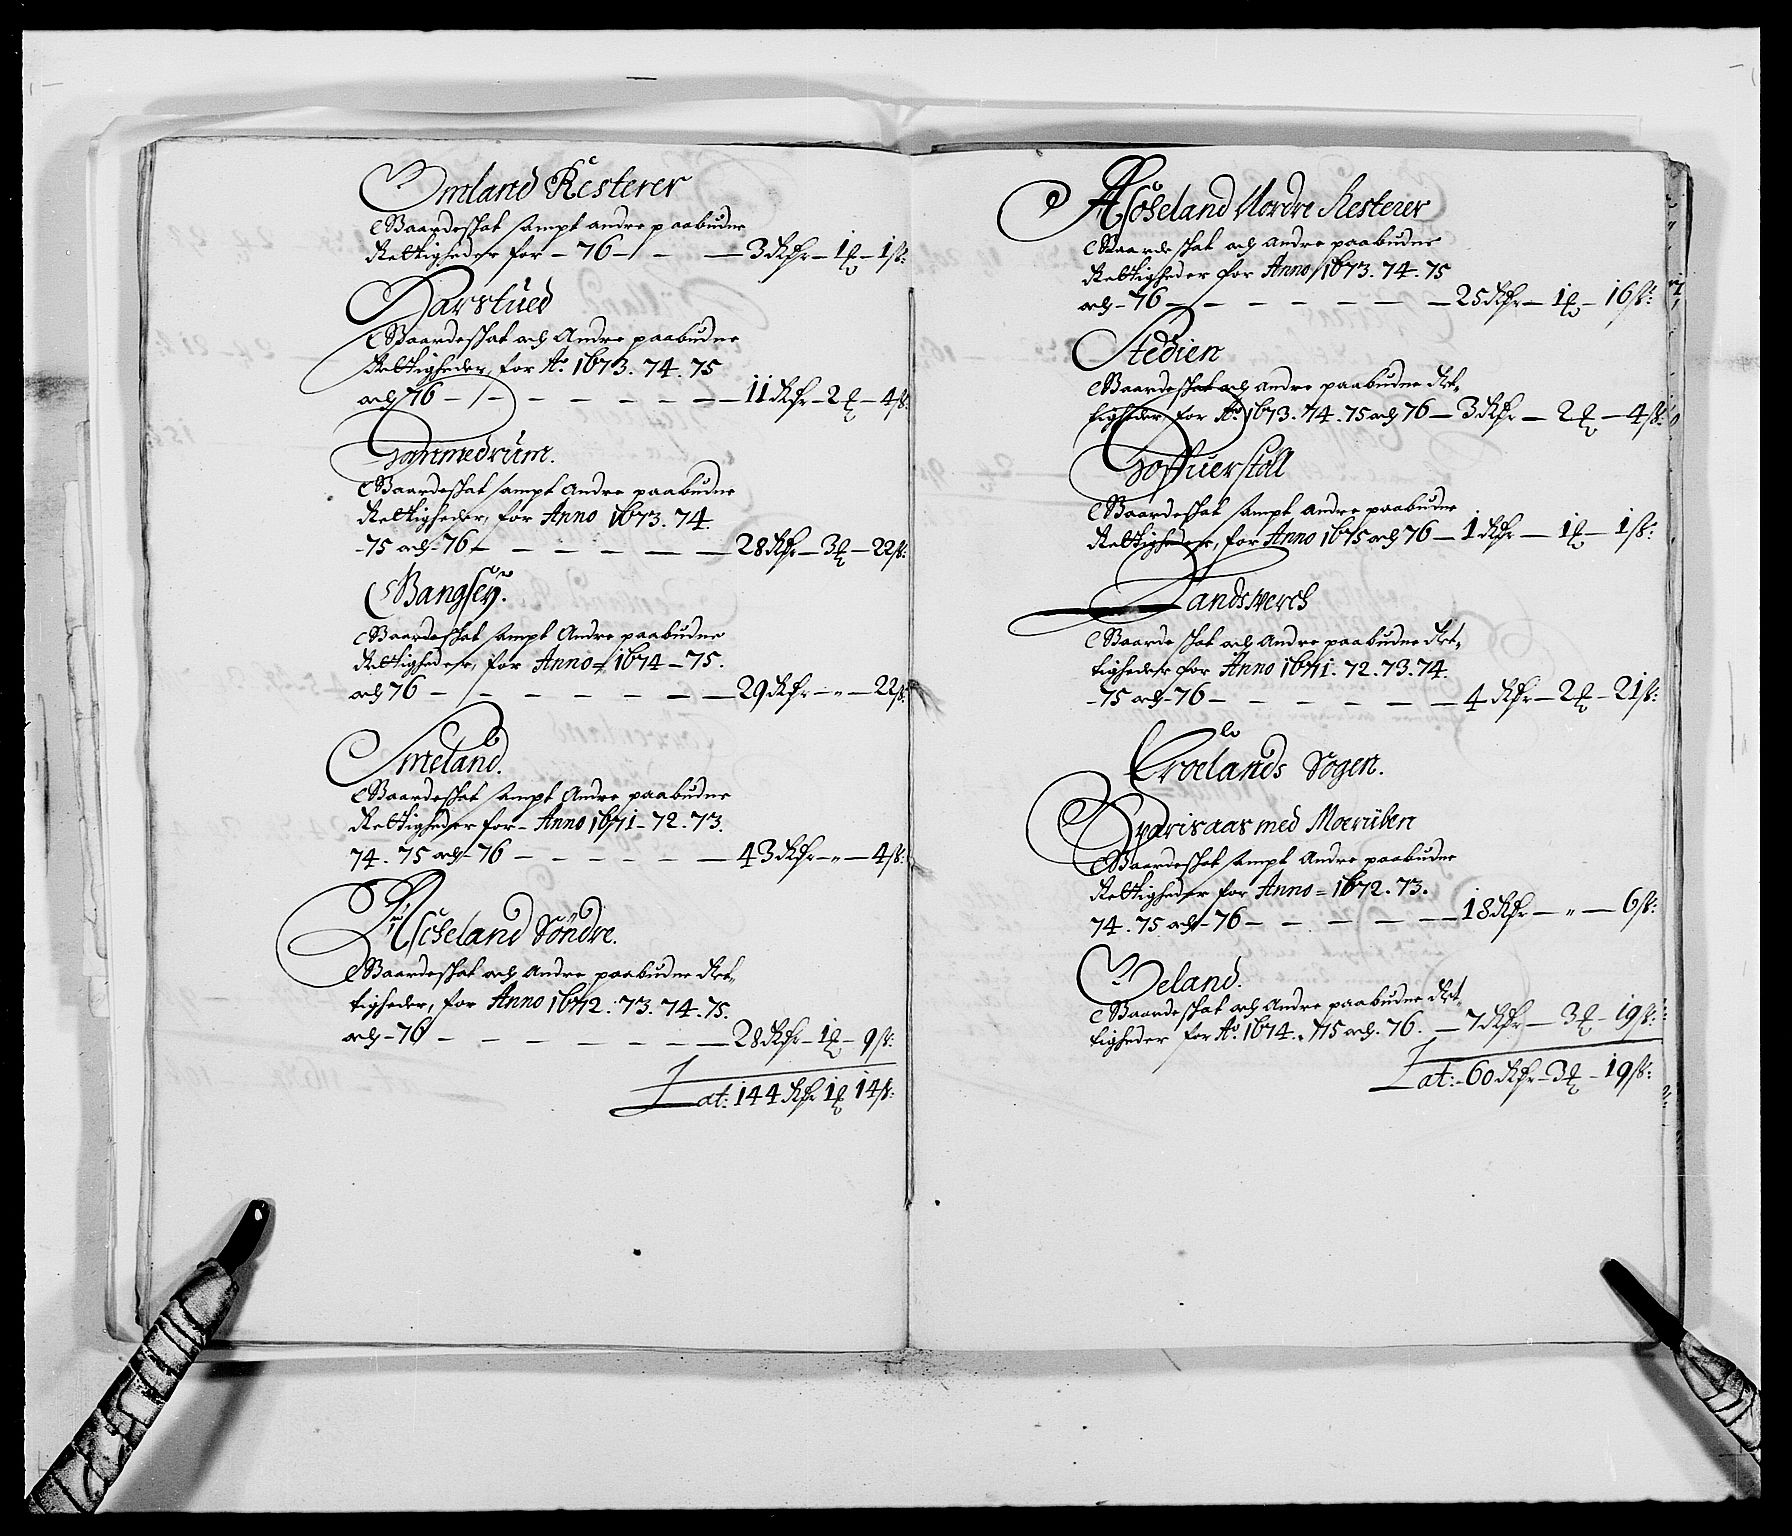 Omland Resterer
Gaardeskat sampt andre paabudne
Rettigheder for – 76 – – – 3 Rdr – 1 ℔ – 1 s:
Harstued
Gaardeskat och Andre paabudne
Rettigheder, for Ao 1673. 74. 75
och 76 – – – – – – – 11 Rdr – 2 ℔ – 4 s:
Gammedrum.
Gaardeskat sampt Andre paabudne
Rettigheder, for Anno 1673. 74.
-75 och -76 – – – – – – 28 Rdr – 3 ℔ – 22 s:
Bangsey.
Gaardeskat sampt Andre paabudne
Rettigheder, for Anno = 1674 – 75.
och 76 – – – – – – – 29 Rdr – „ – 22 s:
Smeland.
Gaardeskat sampt Andre paabudne
Rettigheder for – Anno 1671 – 72. 73.
74. 75 och – 76 – – – – – 43 Rdr – „ – 4 s:
Ascheland Söndre.
Gaardeskat och Andre paabudne Ret-
tigheder, for Anno 1672. 73. 74. 75.
och – 76 – – – – – – – 28 Rdr – 1 ℔ – 9 s:
Lat: 144 Rdr 1 ℔ 14 s:
Ascheland Nordre Resterer
Gaardeskat och Andre paabudne
Rettigheder for Anno 1673. 74. 75
och – 76 – – – – – – – 25 Rdr – 1 ℔ – 16 s:
Stedien
Gaardeskat och andre paabudne Ret-
tigheder, for Ao 1673. 74. 75 och 76 – 3 Rdr – 2 ℔ – 4 s:
Goffuerstall
Gaardeskat sampt andre paabudne
Rettigheder, for Anno 1675 och 76 – 1 Rdr – 1 ℔ – 1 s:
Landswerch
Gaardeskat och Andre paabudne Ret-
tigheder for Anno 1671. 72. 73. 74.
-75 och – 76 – – – – – – 4 Rdr – 2 ℔ – 21 s:
Froelands Sogen.
Sparisaas med Moeruben
Gaardeskat sampt Andre paabudne
Rettigheder for Anno = 1672. 73.
74. 75 och – 76 – – – – – 18 Rdr – „ – 6 s:
Veland.
Gaardeskat och Andre paabudne Ret-
tigheder for Ao 1674. 75 och. 76. – 7 Rdr – 3 ℔ – 19 s:
Lat: – 60 Rdr – 3 ℔ – 19 s: